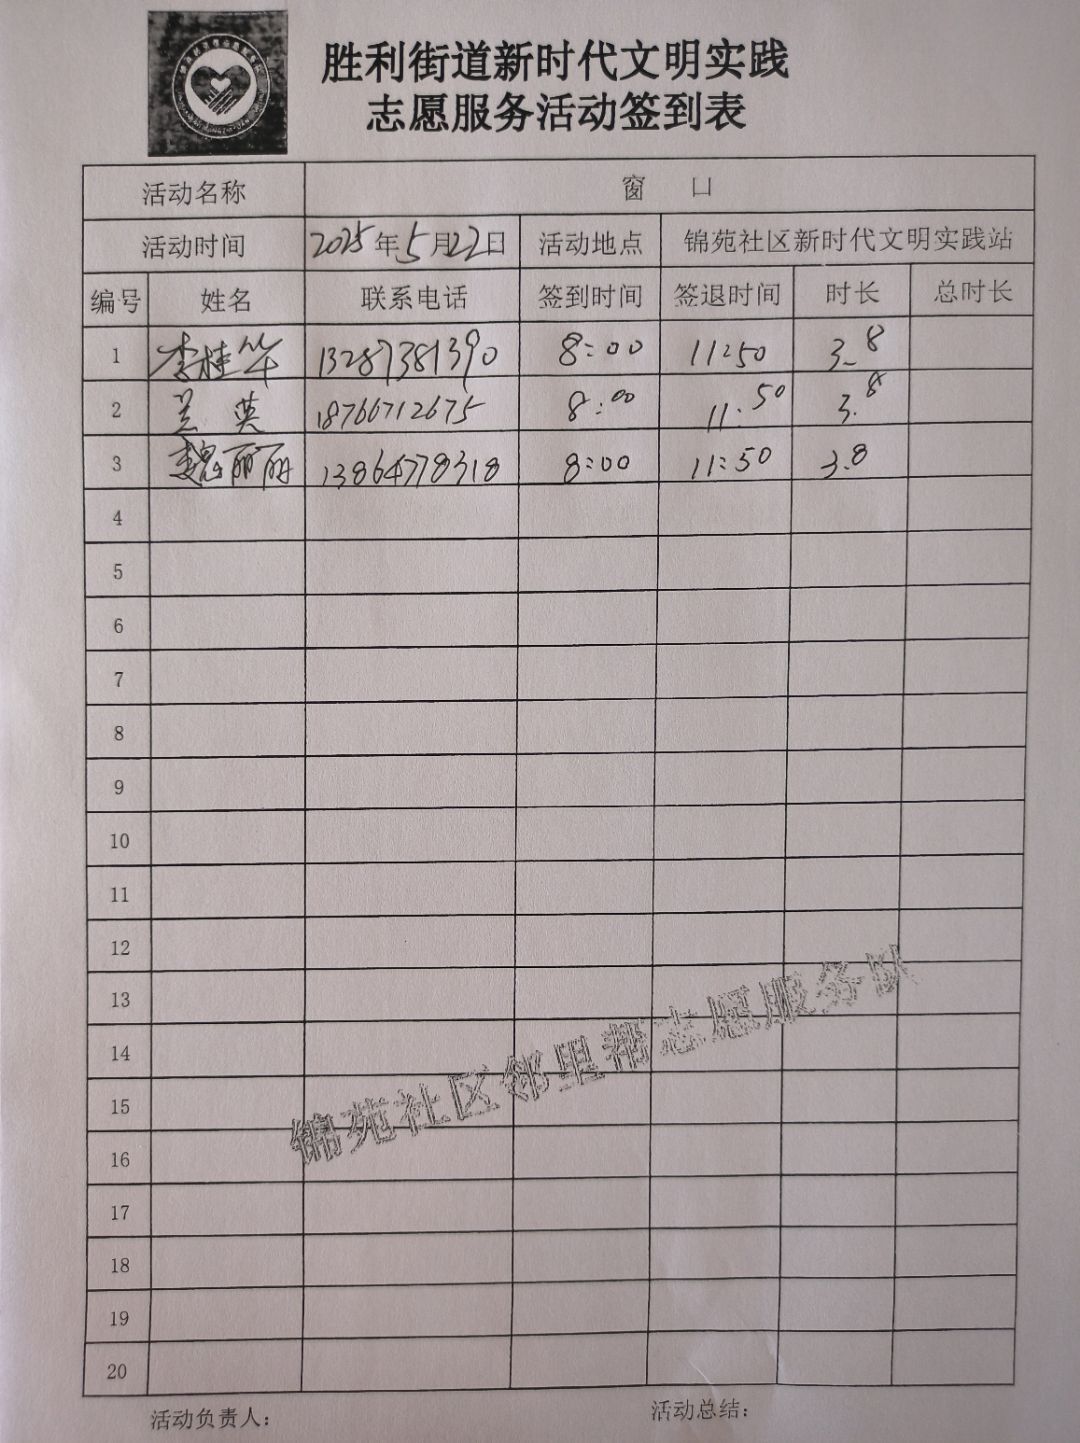 胜利街道新时代文明实践
志愿服务活动签到表
活动名称 窗 口
活动时间 2025年5月22日 活动地点 锦苑社区新时代文明实践站
编号 姓名 联系电话 签到时间 签退时间 时长 总时长
1 李桂华 13287381390 8:00 11:50 3.8
2 兰英 18766712675 8:00 11:50 3.8
3 魏丽丽 13864778318 8:00 11:50 3.8
4
5
6
7
8
9
10
11
12
13
14
15
16
17
18
19
20
锦苑社区邻里帮志愿服务队
活动负责人: 活动总结: